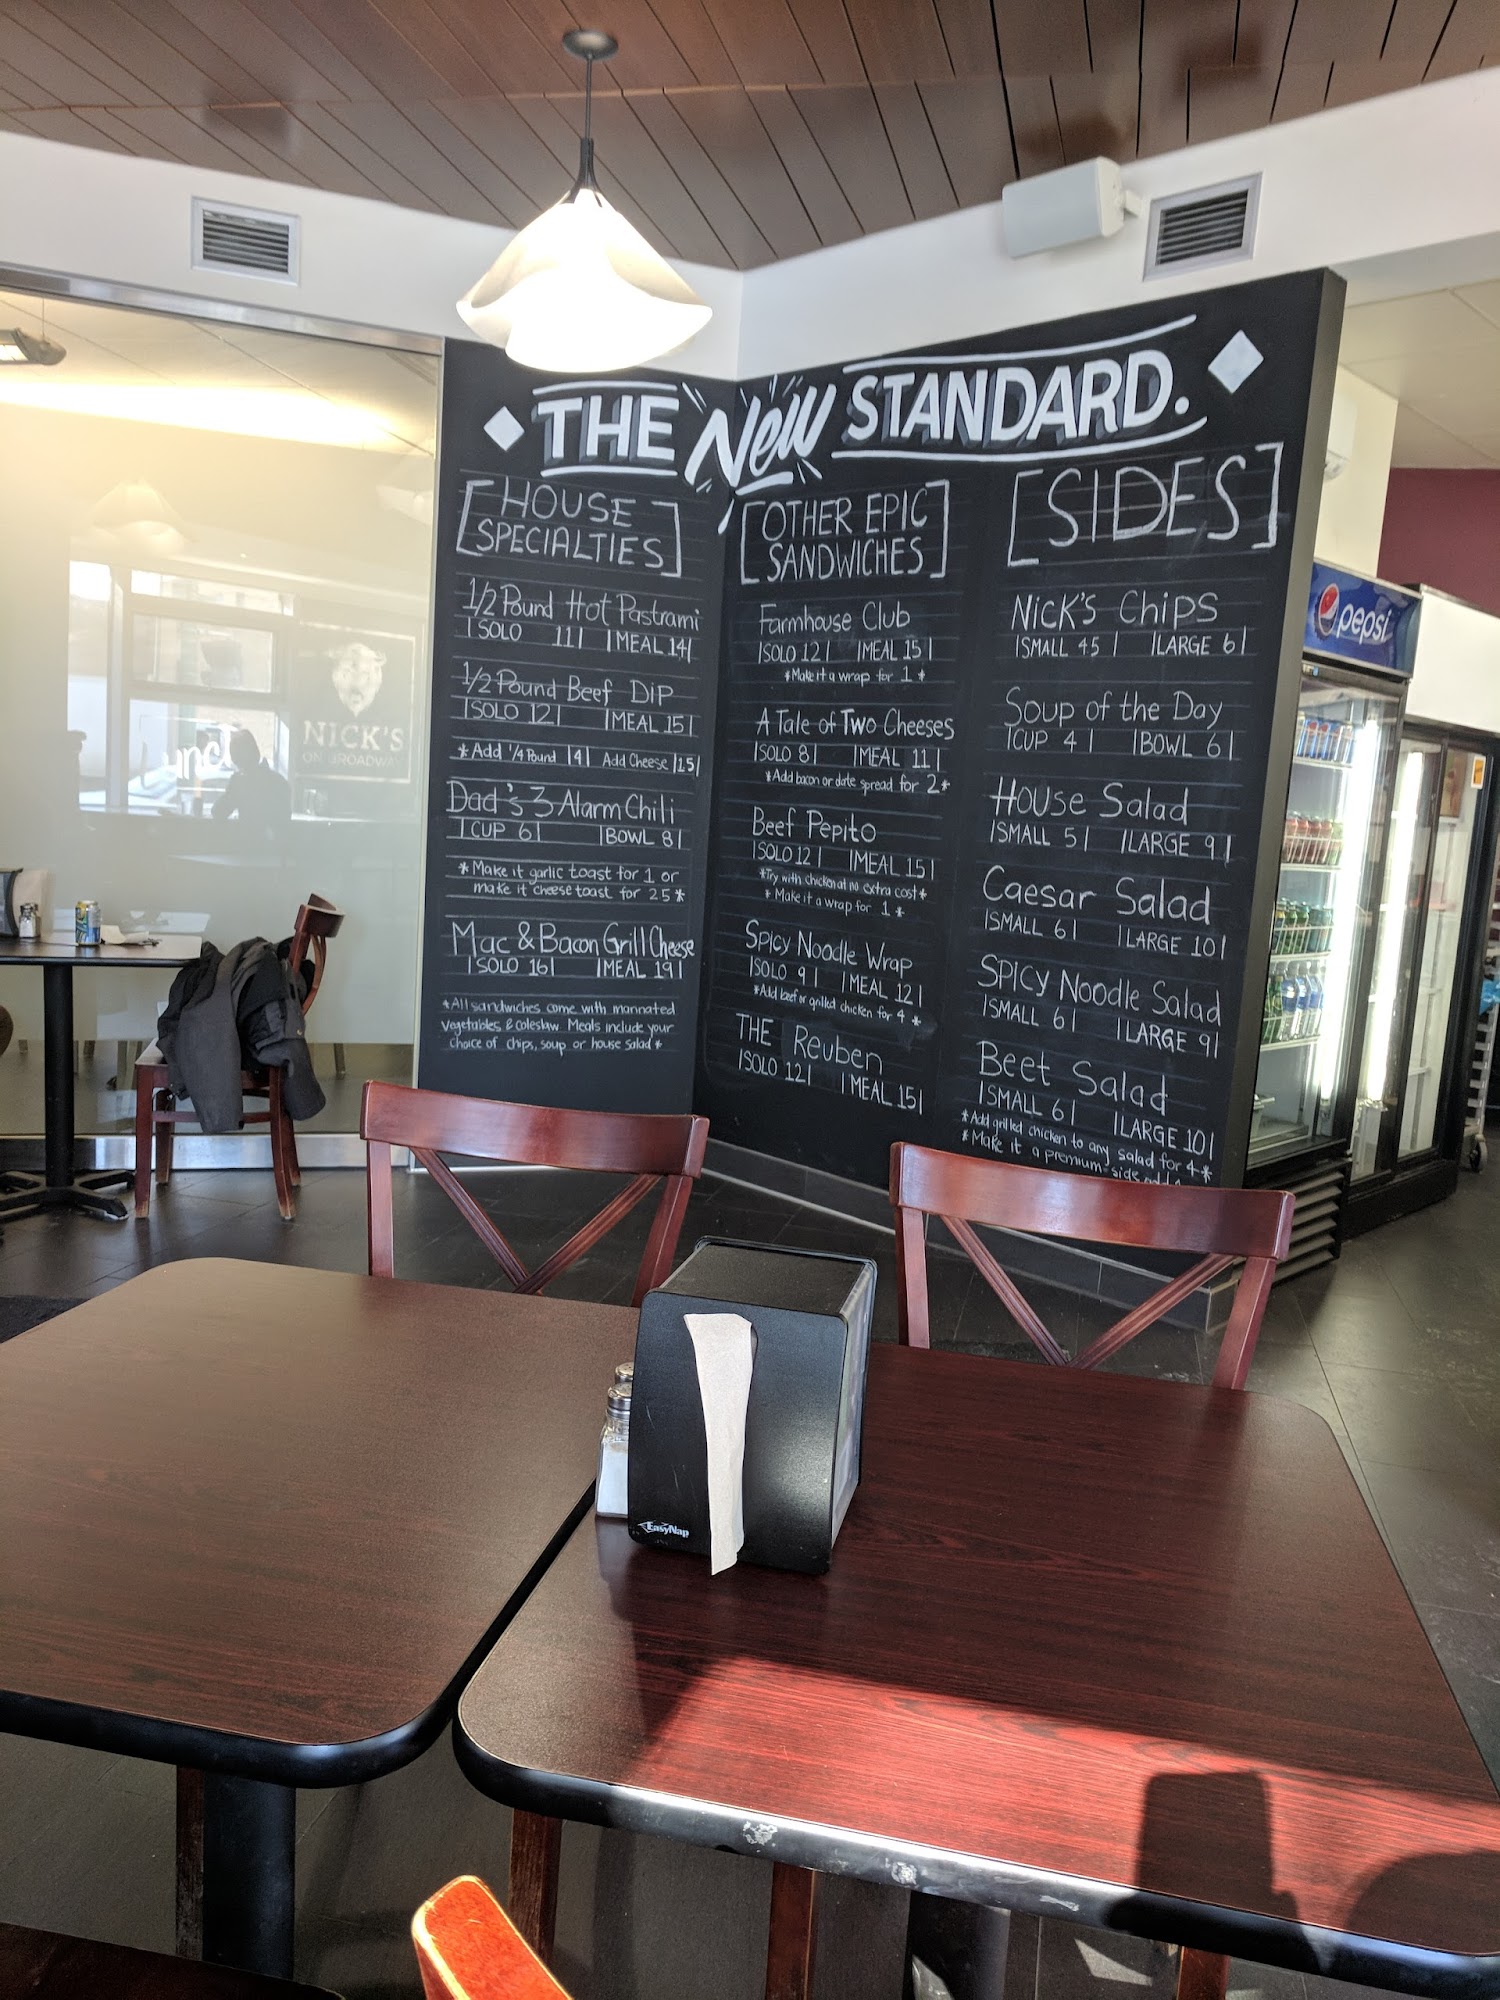 THE New STANDARD.
[HOUSE
SPECIALTIES]
1/2 Pound Hot Pastrami
|SOLO 11| |MEAL 14|
1/2 Pound Beef Dip
|SOLO 12| |MEAL 15|
*Add 1/4 Pound |4| Add Cheese |15|
Dad's 3 Alarm Chili
|CUP 6| |BOWL 8|
*Make it garlic toast for 1 or
make it cheese toast for 25*
Mac & Bacon Grill Cheese
|SOLO 16| |MEAL 19|
*All sandwiches come with marinated
vegetables & coleslaw. Meals include your
choice of chips, soup or house salad*
[OTHER EPIC
SANDWICHES]
Farmhouse Club
|SOLO 12| |MEAL 15|
*Make it a wrap for 1*
A Tale of Two Cheeses
|SOLO 8| |MEAL 11|
*Add bacon or date spread for 2*
Beef Pepito
|SOLO 12| |MEAL 15|
*Try with chicken at no extra cost*
*Make it a wrap for 1*
Spicy Noodle Wrap
|SOLO 9| |MEAL 12|
*Add beef or grilled chicken for 4*
THE Reuben
|SOLO 12| |MEAL 15|
[SIDES]
Nick's Chips
|SMALL 45| |LARGE 6|
Soup of the Day
|CUP 4| |BOWL 6|
House Salad
|SMALL 5| |LARGE 9|
Caesar Salad
|SMALL 6| |LARGE 10|
Spicy Noodle Salad
|SMALL 6| |LARGE 9|
Beet Salad
|SMALL 6| |LARGE 10|
*Add grilled chicken to any salad for 4*
*Make it a premium side
pepsi
NICK'S
ON BROADWAY
EasyNap